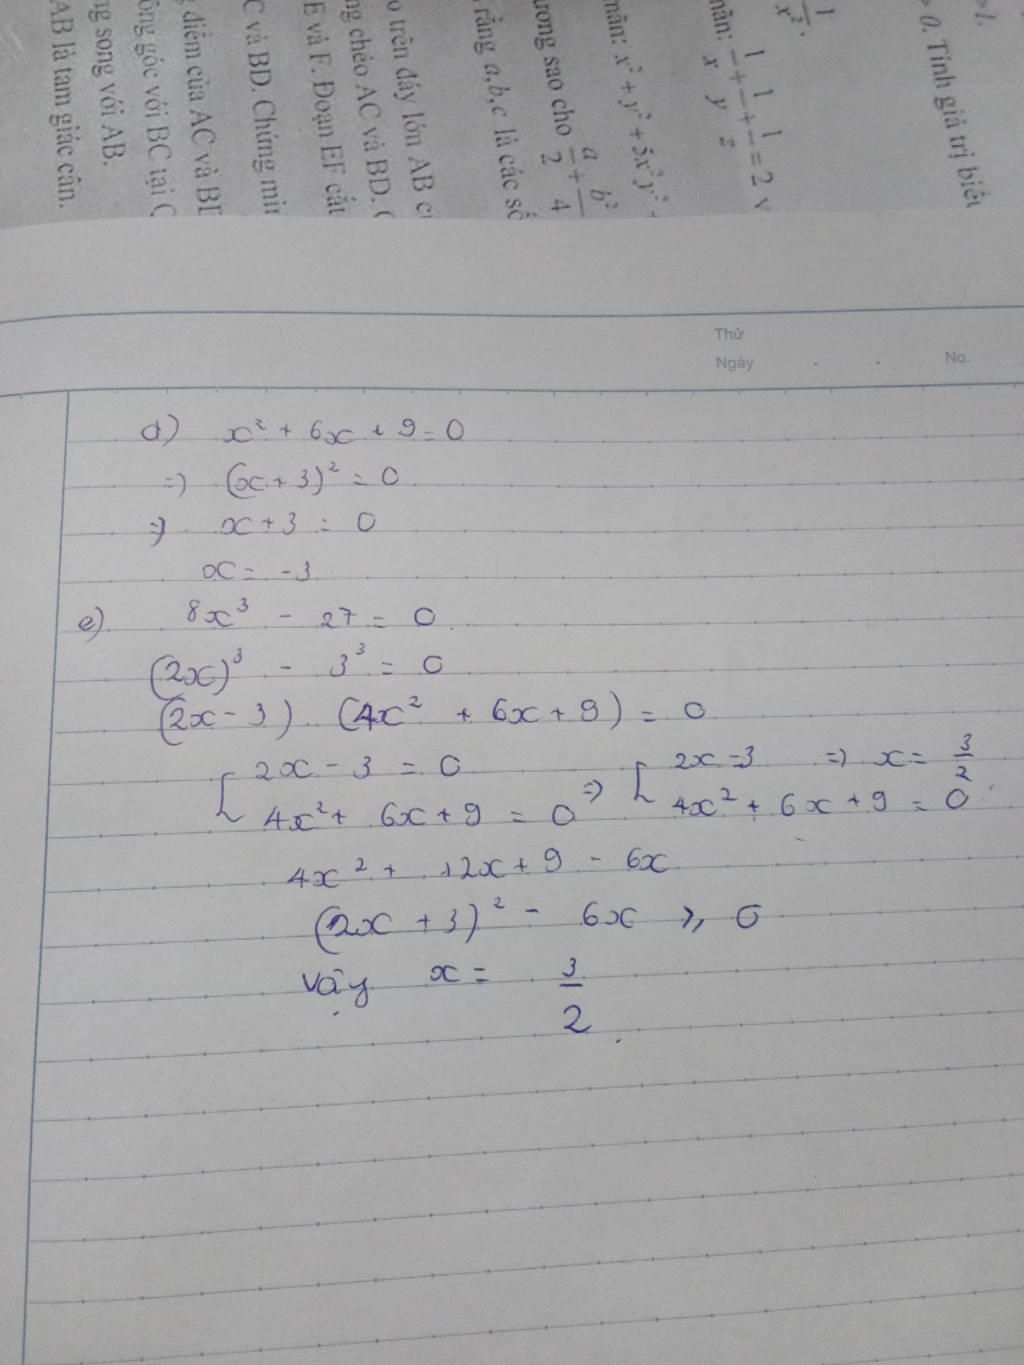 >1.
> 0. Tính giá trị biểu
1/x².
mãn: 1/x + 1/y + 1/z = 2 v
mãn: x² + y² + 5x²y² -
ương sao cho a/2 + b²/4
rằng a,b,c là các số
o trên đáy lớn AB c
ng chéo AC và BD. C
E và F. Đoạn EF cắt
C và BD. Chứng mi
điểm của AC và B
ông góc với BC tại C
ng song với AB.
AB là tam giác cân.
Thứ
Ngày . . No.
d) x² + 6x + 9 = 0
=) (x + 3)² = 0
=) x + 3 = 0
x = -3
e) 8x³ - 27 = 0
(2x)³ - 3³ = 0
(2x - 3) . (4x² + 6x + 9) = 0
[ 2x - 3 = 0 =) [ 2x = 3 =) x = 3/2
4x² + 6x + 9 = 0 4x² + 6x + 9 = 0
4x² + 12x + 9 - 6x
(2x + 3)² - 6x ⩾ 0
vậy x = 3/2.